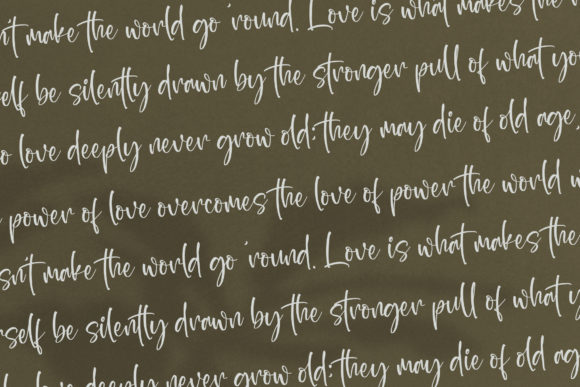 make the world go 'round. Love is what makes the
be silently drawn by the stronger pull of what
love deeply never grow old; they may die of old age,
power of love overcomes the love of power the world
make the world go 'round. Love is what makes the
be silently drawn by the stronger pull of what
deeply never grow old; they may die of old age